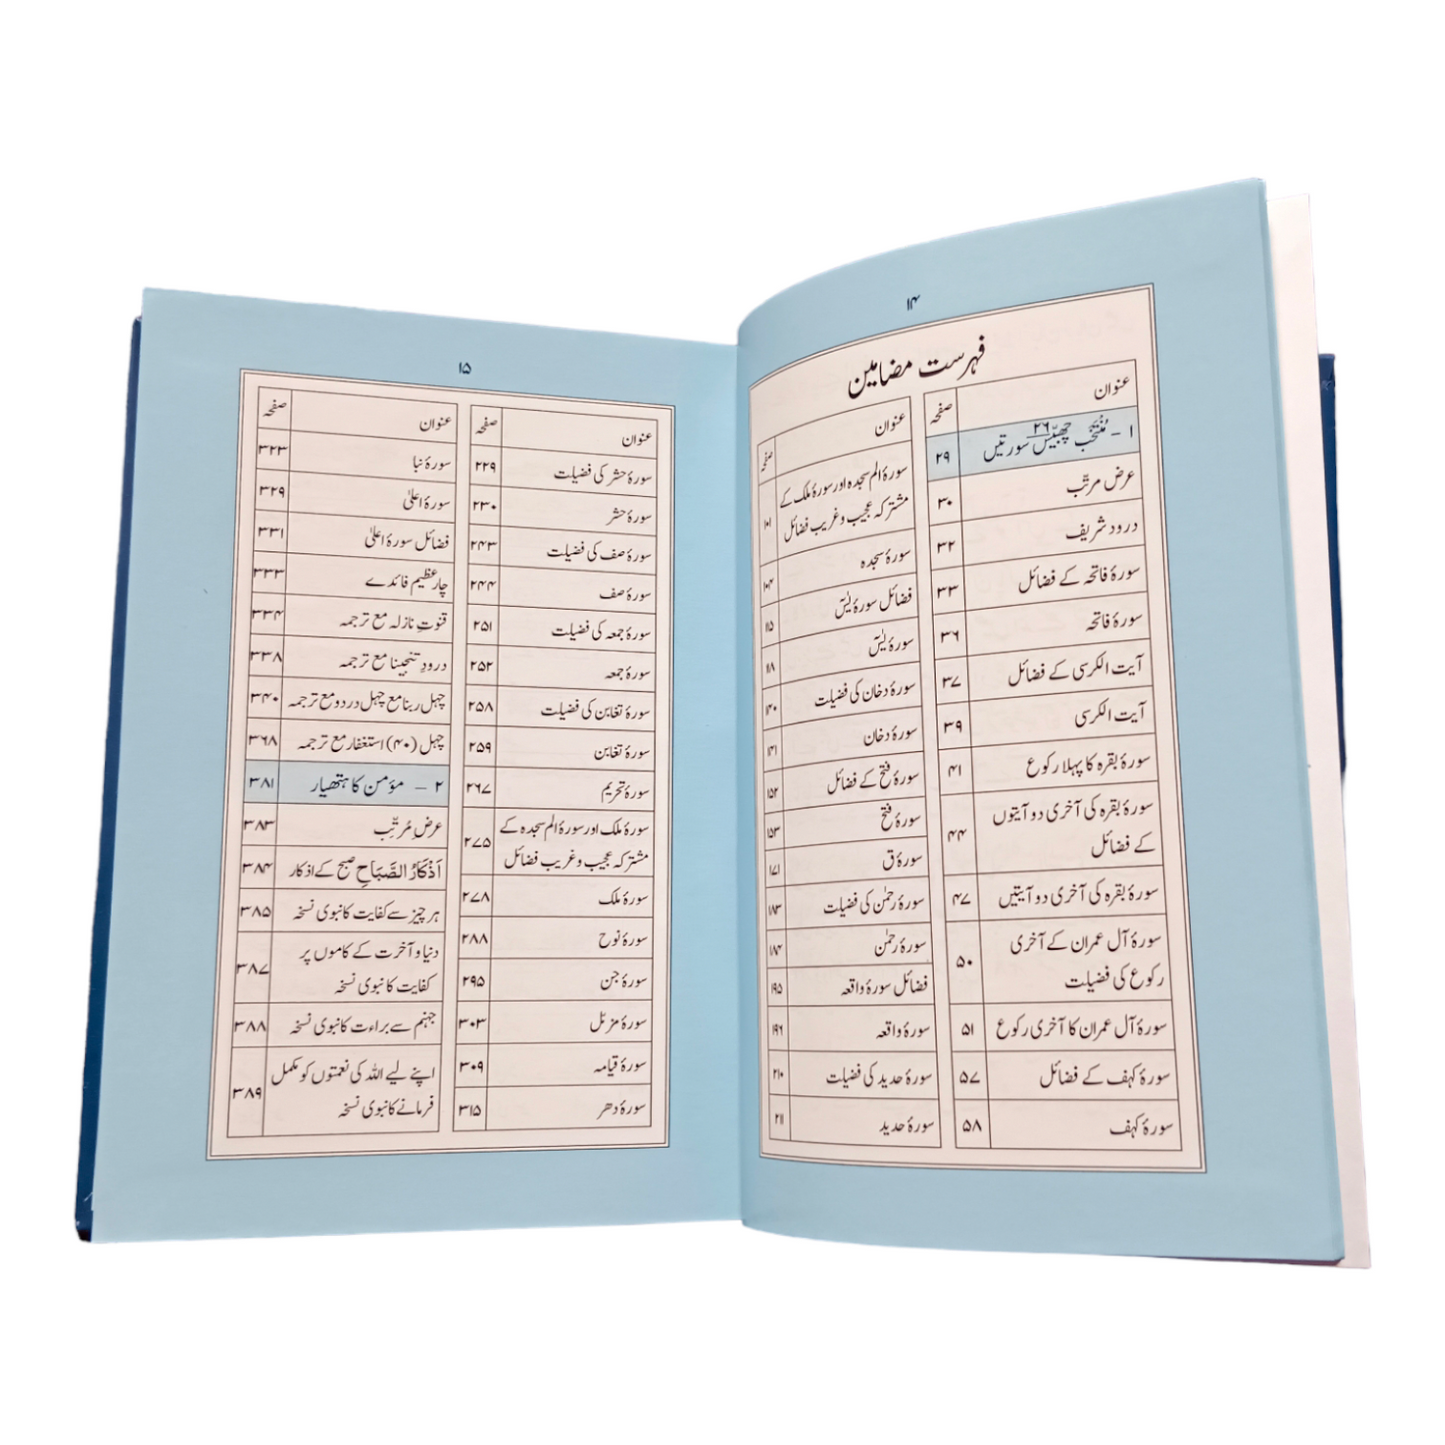 ۱۴
فہرست مضامین
عنوان صفحہ
۱ - مُنْتَخَب چھبّیس ۲۶ سورتیں ۲۹
عرض مرتّب ۳۰
درود شریف ۳۲
سورۂ فاتحہ کے فضائل ۳۳
سورۂ فاتحہ ۳۶
آیت الکرسی کے فضائل ۳۷
آیت الکرسی ۳۹
سورۂ بقرہ کا پہلا رکوع ۴۱
سورۂ بقرہ کی آخری دو آیتوں
کے فضائل ۴۴
سورۂ بقرہ کی آخری دو آیتیں ۴۷
سورۂ آل عمران کے آخری
رکوع کی فضیلت ۵۰
سورۂ آل عمران کا آخری رکوع ۵۱
سورۂ کہف کے فضائل ۵۷
سورۂ کہف ۵۸
عنوان صفحہ
سورۂ الم سجدہ اور سورۂ ملک کے
مشترکہ عجیب و غریب فضائل ۱۰۱
سورۂ سجدہ ۱۰۴
فضائل سورۂ یٰسٓ ۱۱۵
سورۂ یٰسٓ ۱۱۸
سورۂ دخان کی فضیلت ۱۴۰
سورۂ دخان ۱۴۱
سورۂ فتح کے فضائل ۱۵۲
سورۂ فتح ۱۵۳
سورۂ ق ۱۷۱
سورۂ رحمٰن کی فضیلت ۱۸۳
سورۂ رحمٰن ۱۸۴
فضائل سورۂ واقعہ ۱۹۵
سورۂ واقعہ ۱۹۶
سورۂ حدید کی فضیلت ۲۱۰
سورۂ حدید ۲۱۱
۱۵
عنوان صفحہ
سورۂ حشر کی فضیلت ۲۲۹
سورۂ حشر ۲۳۰
سورۂ صف کی فضیلت ۲۴۳
سورۂ صف ۲۴۴
سورۂ جمعہ کی فضیلت ۲۵۱
سورۂ جمعہ ۲۵۲
سورۂ تغابن کی فضیلت ۲۵۸
سورۂ تغابن ۲۵۹
سورۂ تحریم ۲۶۷
سورۂ ملک اور سورۂ الم سجدہ کے
مشترکہ عجیب و غریب فضائل ۲۷۵
سورۂ ملک ۲۷۸
سورۂ نوح ۲۸۸
سورۂ جن ۲۹۵
سورۂ مزمل ۳۰۳
سورۂ قیامہ ۳۰۹
سورۂ دھر ۳۱۵
عنوان صفحہ
سورۂ نبا ۳۲۳
سورۂ اعلیٰ ۳۲۹
فضائل سورۂ اعلیٰ ۳۳۱
چار عظیم فائدے ۳۳۳
قنوتِ نازلہ مع ترجمہ ۳۳۴
درودِ تنجینا مع ترجمہ ۳۳۸
چہل ربنا مع چہل درود مع ترجمہ ۳۴۰
چہل (۴۰) استغفار مع ترجمہ ۳۶۸
۲ - مؤمن کا ہتھیار ۳۸۱
عرضِ مُرتِّب ۳۸۳
اَذْکَارُ الصَّبَاحِ صبح کے اذکار ۳۸۴
ہر چیز سے کفایت کا نبوی نسخہ ۳۸۵
دنیا و آخرت کے کاموں پر
کفایت کا نبوی نسخہ ۳۸۷
جہنم سے براءت کا نبوی نسخہ ۳۸۸
اپنے لیے اللہ کی نعمتوں کو مکمل
فرمانے کا نبوی نسخہ ۳۸۹